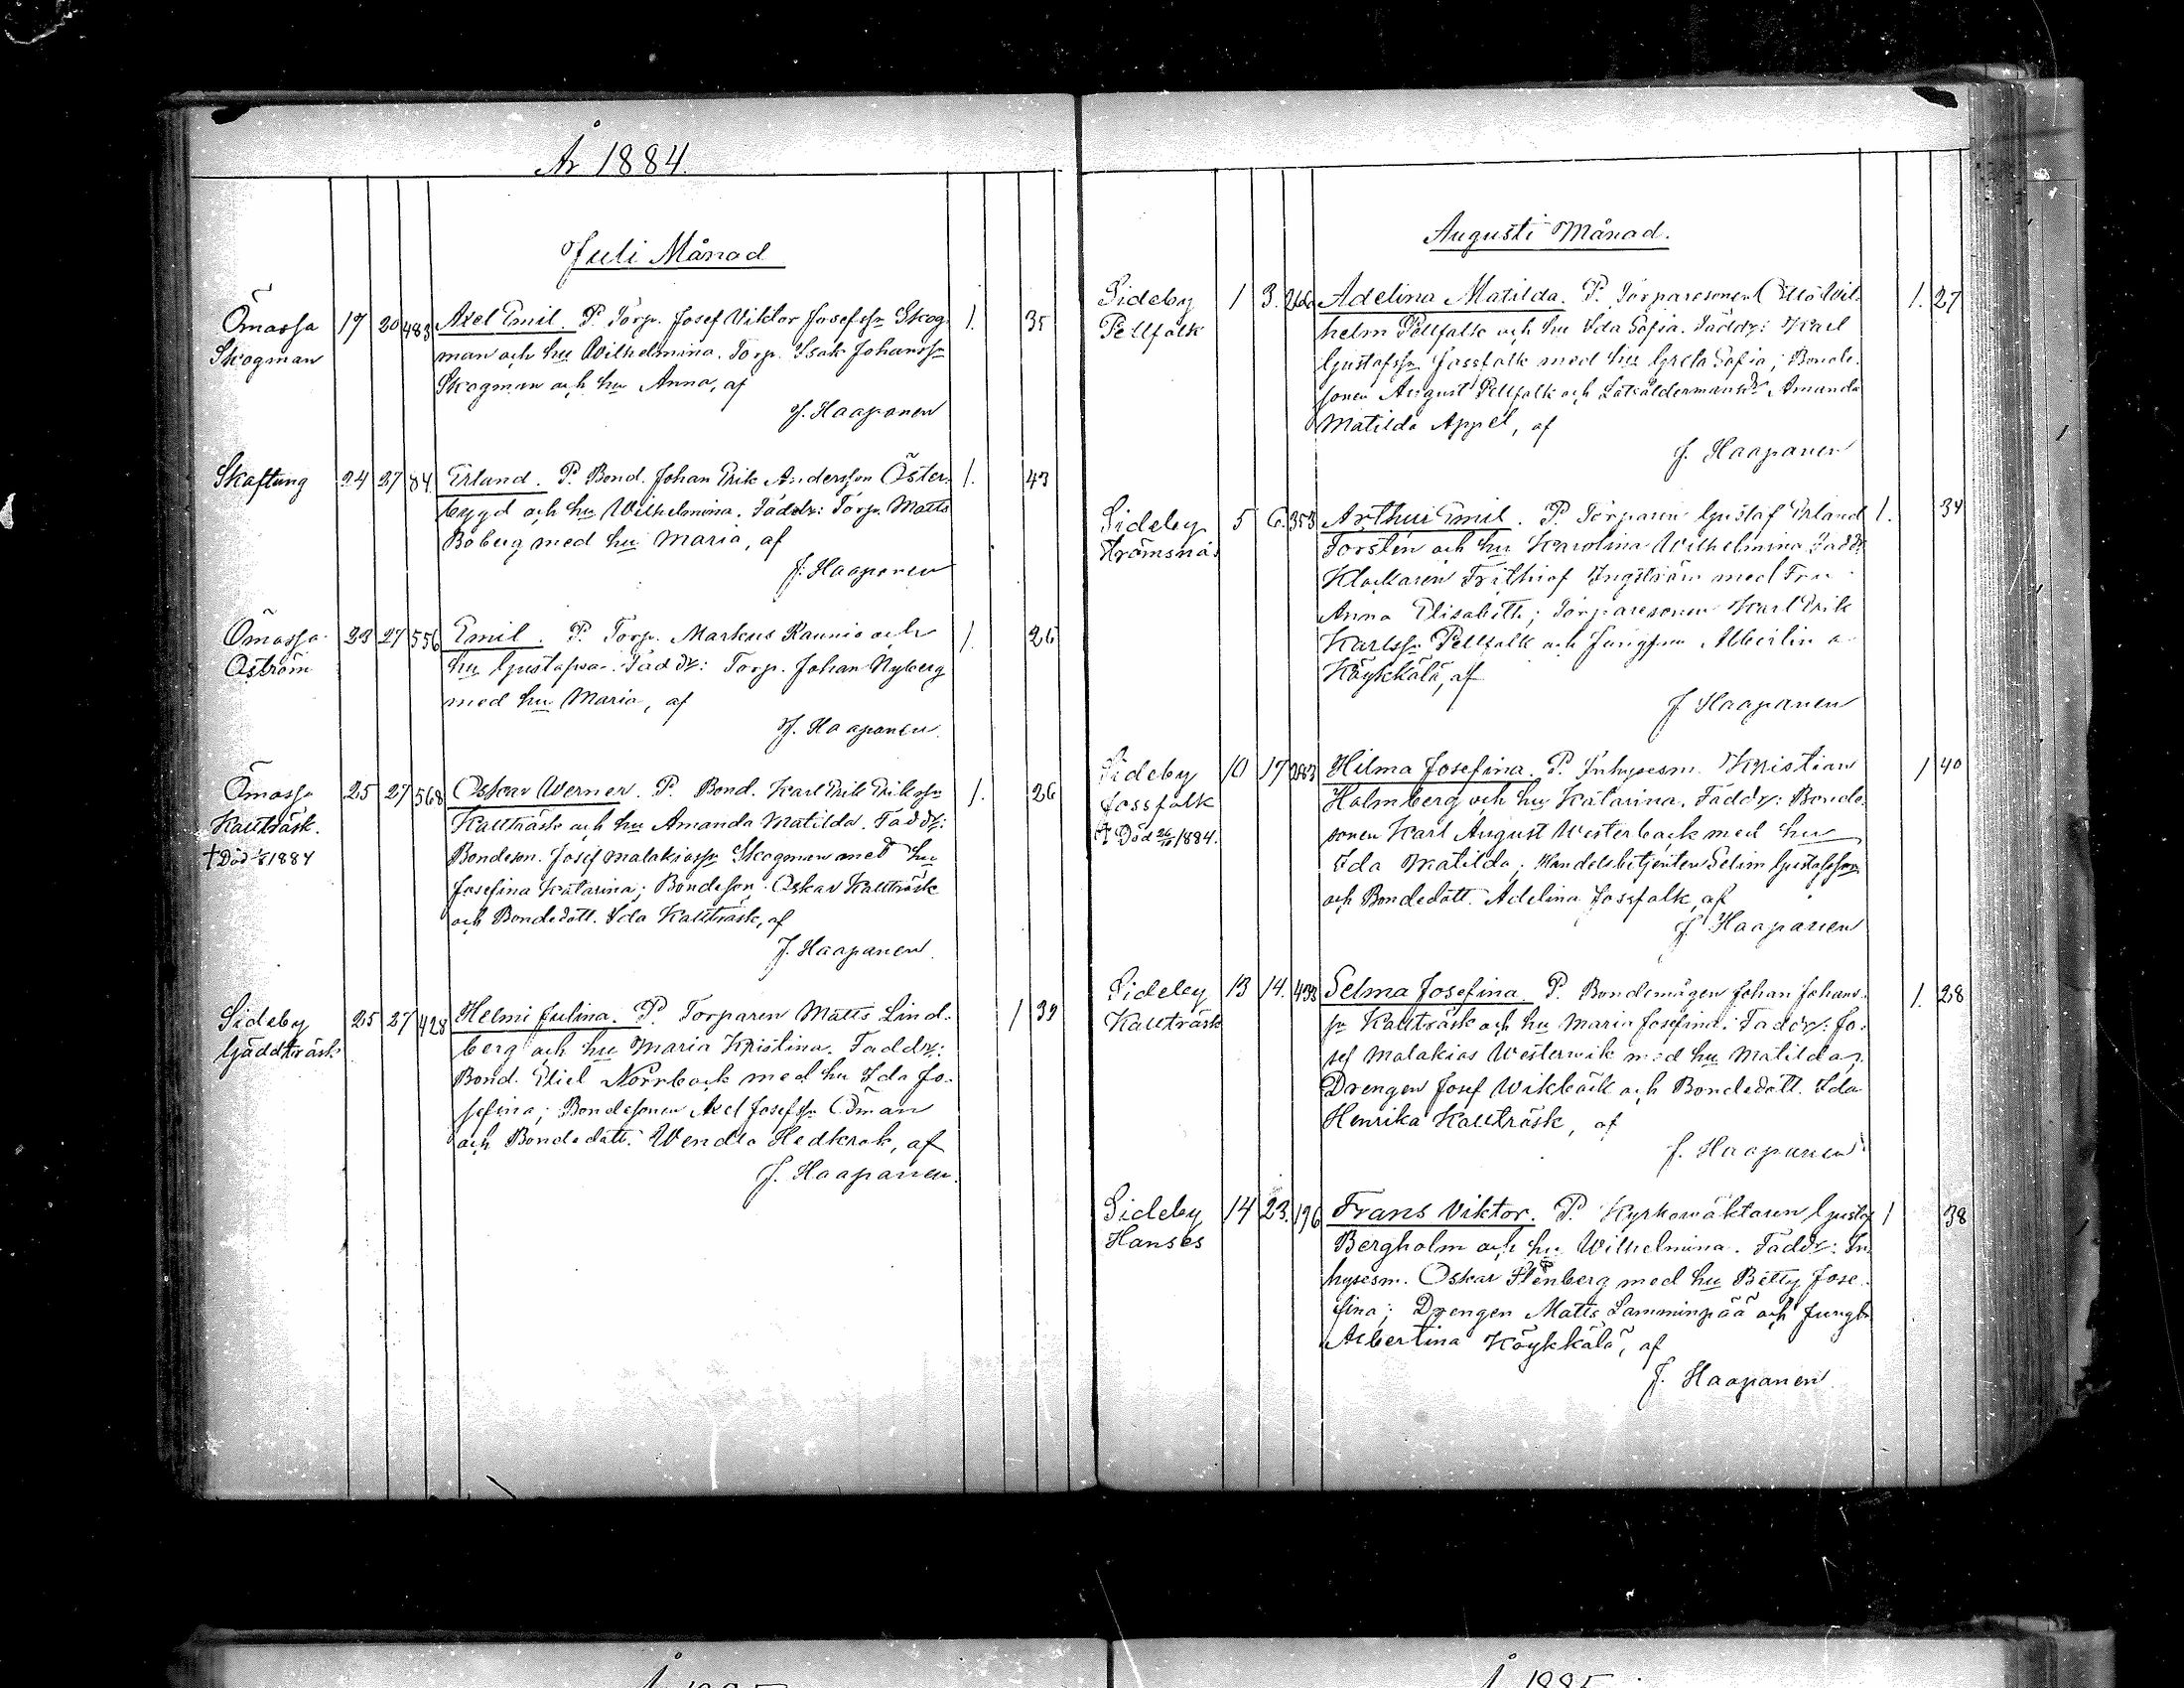 År 1884.
Juli Månad
Ömossa 17 20 483 Axel Emil. P. Torp. Josef Viktor Josefss. Skog- 1. 35
Skogman man och hu Wilhelmina. Torp. Isak Johanss.
Skogman och hu Anna, af
J. Haapanen
Skaftung 24 27 84 Erland. P. Bond. Johan Erik Andersson Öster- 1. 43
bygd och hu Wilhelmina. Faddr: Torp. Matts
Boberg med hu Maria, af
J. Haapanen
Ömossa 23 27 556 Emil. P. Torp. Markus Raunio och 1. 26
Åström hu Gustafva. Faddr: Torp. Johan Nyberg
med hu Maria, af
J. Haapanen.
Ömossa 25 27 568 Oskar Werner. P. Bond. Karl Erik Erikss. 1. 26
Kallträsk. Kallträsk och hu Amanda Matilda. Faddr:
† Död 1884 Bondeson. Josef Malakiass. Skogman med hu
Josefina Katarina; Bondeson. Oskar Kallträsk
och Bondedott. Ida Kallträsk, af
J. Haapanen.
Sideby 25 27 428 Helmi Julina. P. Torparen Matts Lind- 1 39
Gäddträsk berg och hu Maria Kristina. Faddr:
Bond. Eliel Norrback med hu Ida Jo-
sefina; Bondesonen Axel Josefss. Öman
och Bondedott. Wendla Hedkrok, af
J. Haapanen.
Augusti Månad.
Sideby 1 3. 266 Adelina Matilda. P. Torparesonen Otto Wil- 1. 27
Pellfolk helm Pellfolk och hu Ida Sofia. Faddr: Karl
Gustafss. Jossfolk med hu Greta Sofia; Bonde-
sonen August Pellfolk och Lotsåldermansdr Amanda
Matilda Appel, af
J. Haapanen
Sideby 5 6. 353 Arthur Emil. P. Torparen Gustaf Erland 1. 34
Strömsnäs Forstén och hu Karolina Wilhelmina. Faddr:
Klockaren Frithiof Ingström med Fru
Anna Elisabeth; Torparesonen Karl Erik
Karlss. Pellfolk och Jungfrun Albertina
Köykkälä, af
J. Haapanen
Sideby 10 17 Hilma Josefina. P. Inhysesm. Kristian 1 40
Jossfolk Holmberg och hu Katarina. Faddr: Bonde-
† Död 26/10 1884. sonen Karl August Westerback med hu
Ida Matilda; Handelsbetjenten Selim Gustafsson
och Bondedott. Adelina Jossfolk, af
J. Haapanen
Sideby 13 14. 433 Selma Josefina. P. Bondemågen Johan Johans- 1. 28
Kallträsk sn Kallträsk och hu Maria Josefina. Faddr: Jo-
sef Malakias Westerwik med hu Matilda;
Drengen Josef Wikbäck och Bondedott. Ida
Henrika Kallträsk, af
J. Haapanen
Sideby 14 23. 196 Frans Viktor. P. Kyrkowäktaren Gustaf 1 38
Hanses Bergholm och hu Wilhelmina. Faddr: In-
hysesm. Oskar Stenberg med hu Betty Jose-
fina; Drengen Matts Lamminpää och Jungfr.
Albertina Köykkälä, af
J. Haapanen
År 1885.